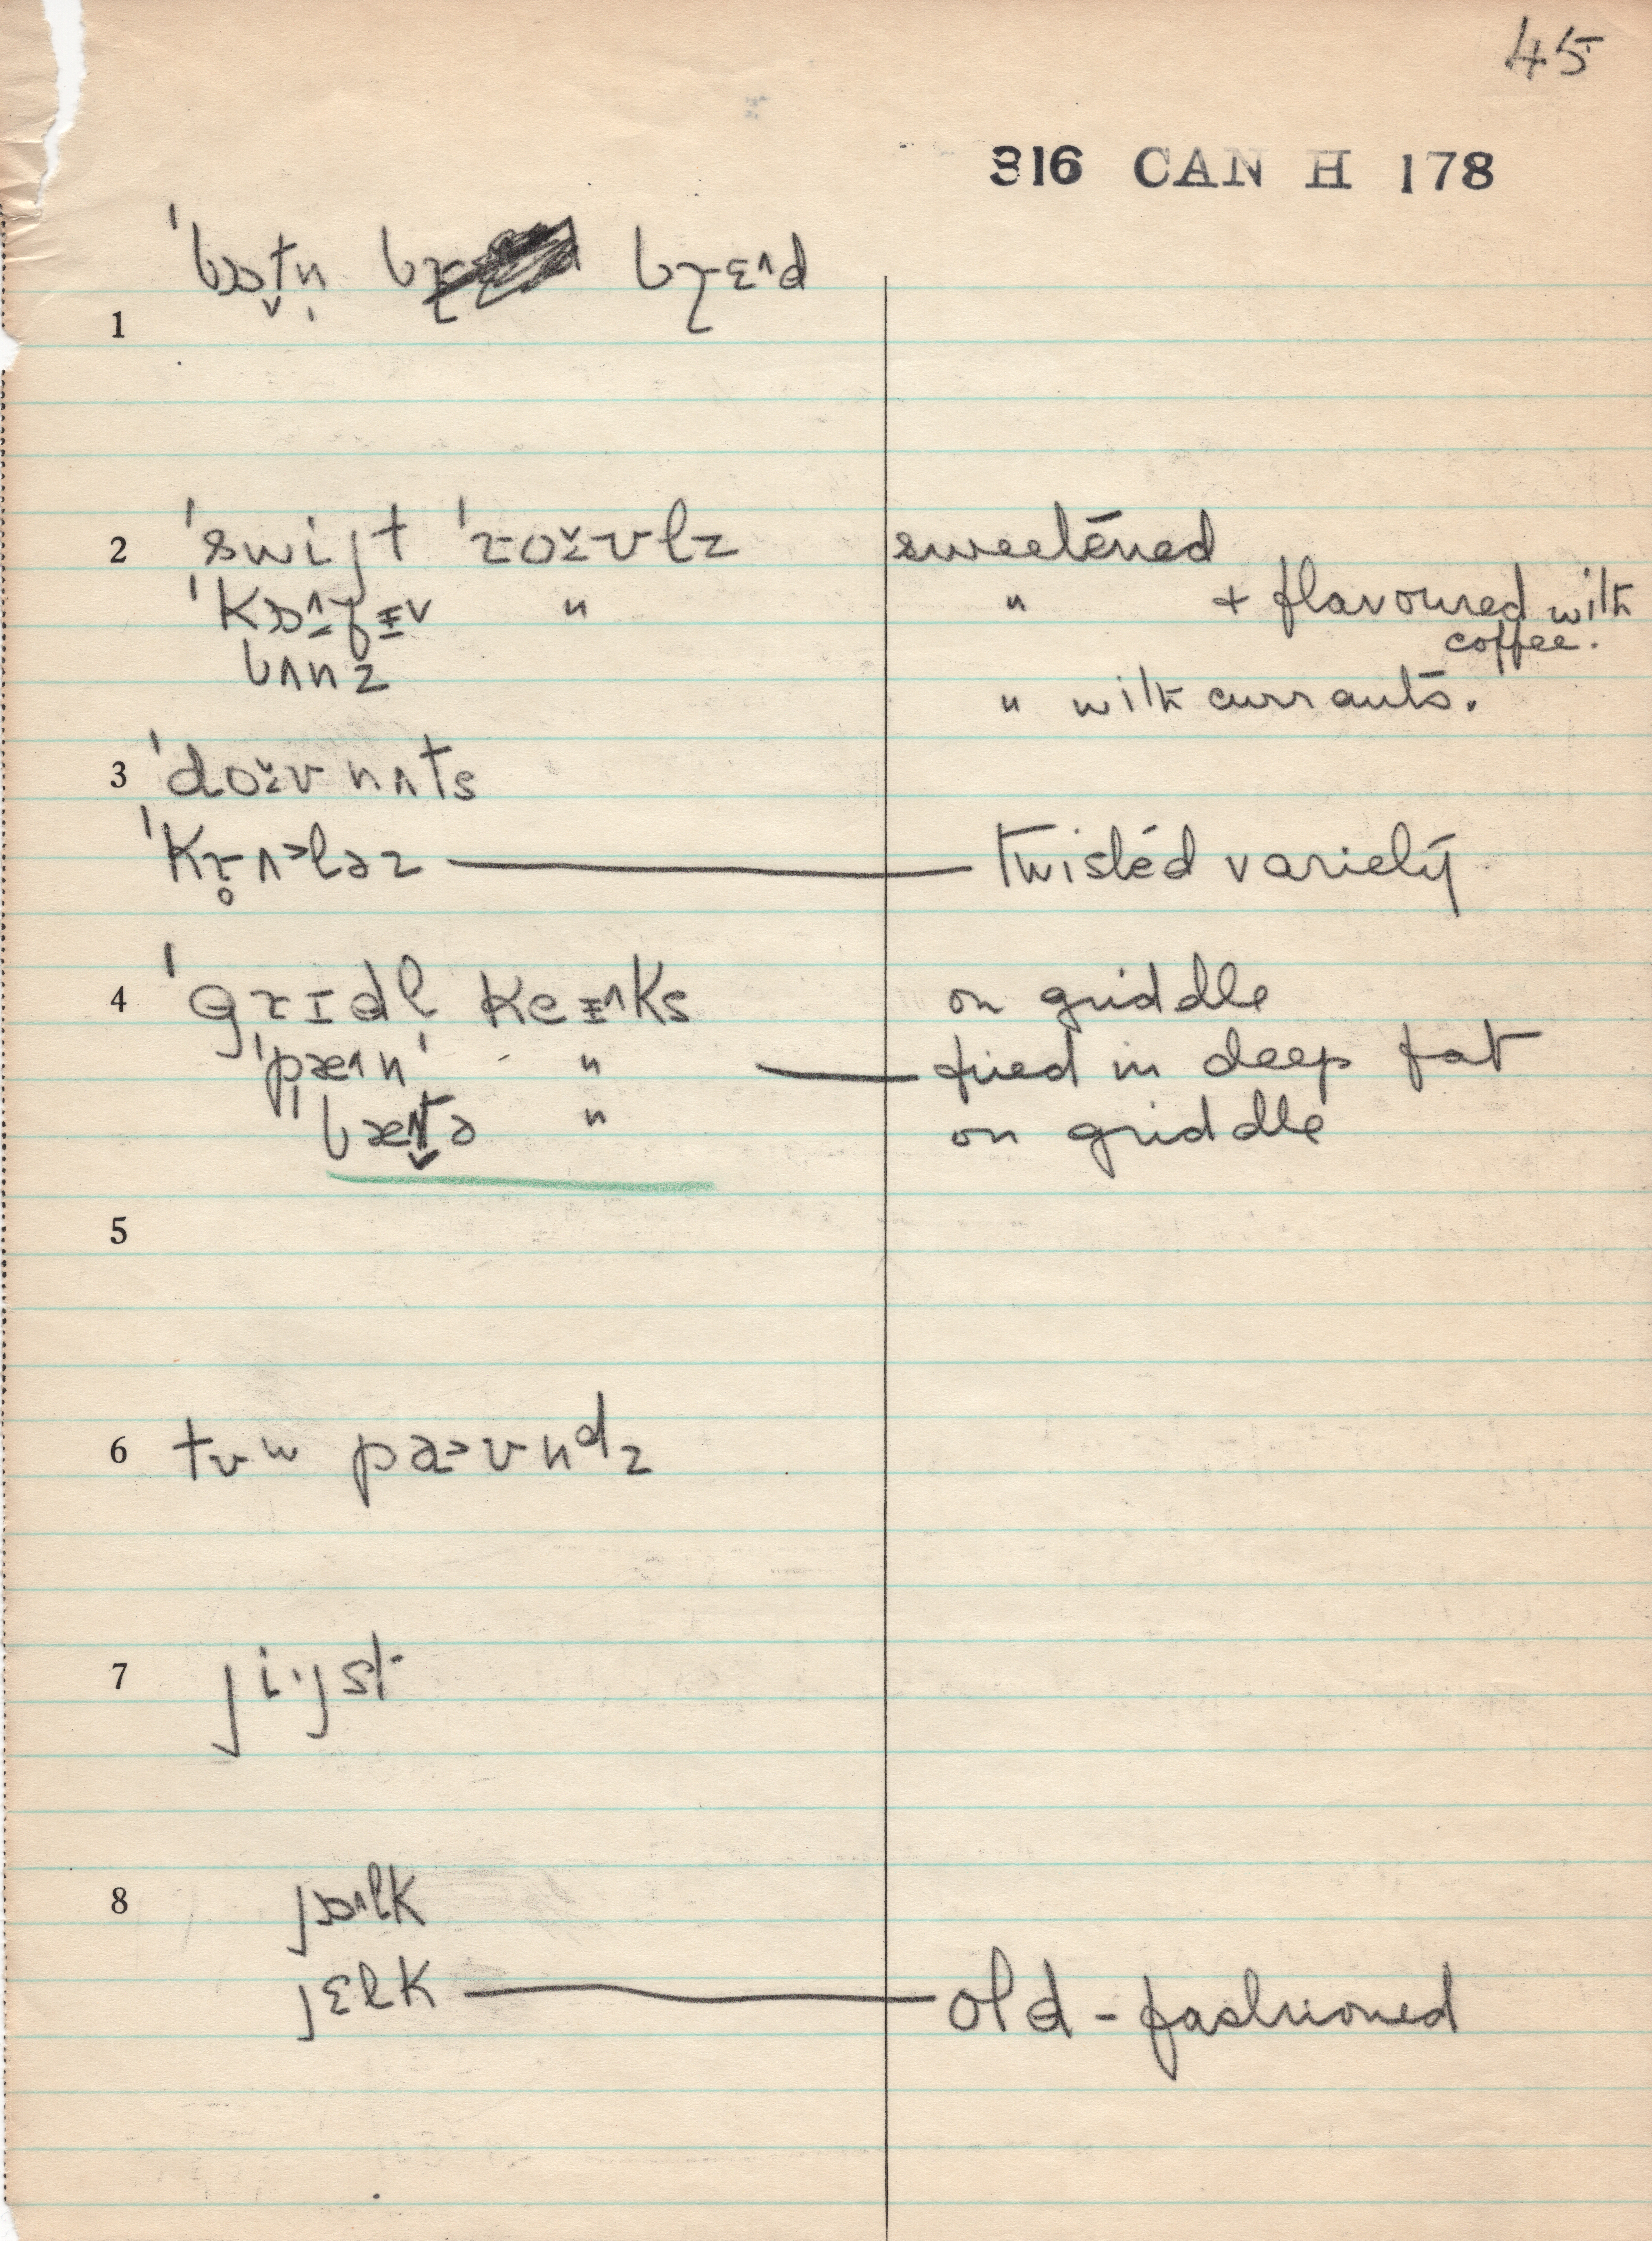 45
316 CAN H 178
1 ˈbɒt̬n̩ bɽɛ^d
2 ˈswijt ˈroˇʊlz sweetened
ˈkɒ^fɪv " " + flavoured with
coffee.
bʌnz
" with currants.
3 ˈdoˇʊnʌts
ˈkr̥ʌ>ləz — twisted variety
4 ˈgrɪdl keɪ^ks on griddle
ˈpæ^n " — fried in deep fat
ˈbæt̬ə " on griddle
5
6 tʊw pa>ʊndz
7 ji·jst
8 jɒ^lk
jɛlk — old-fashioned